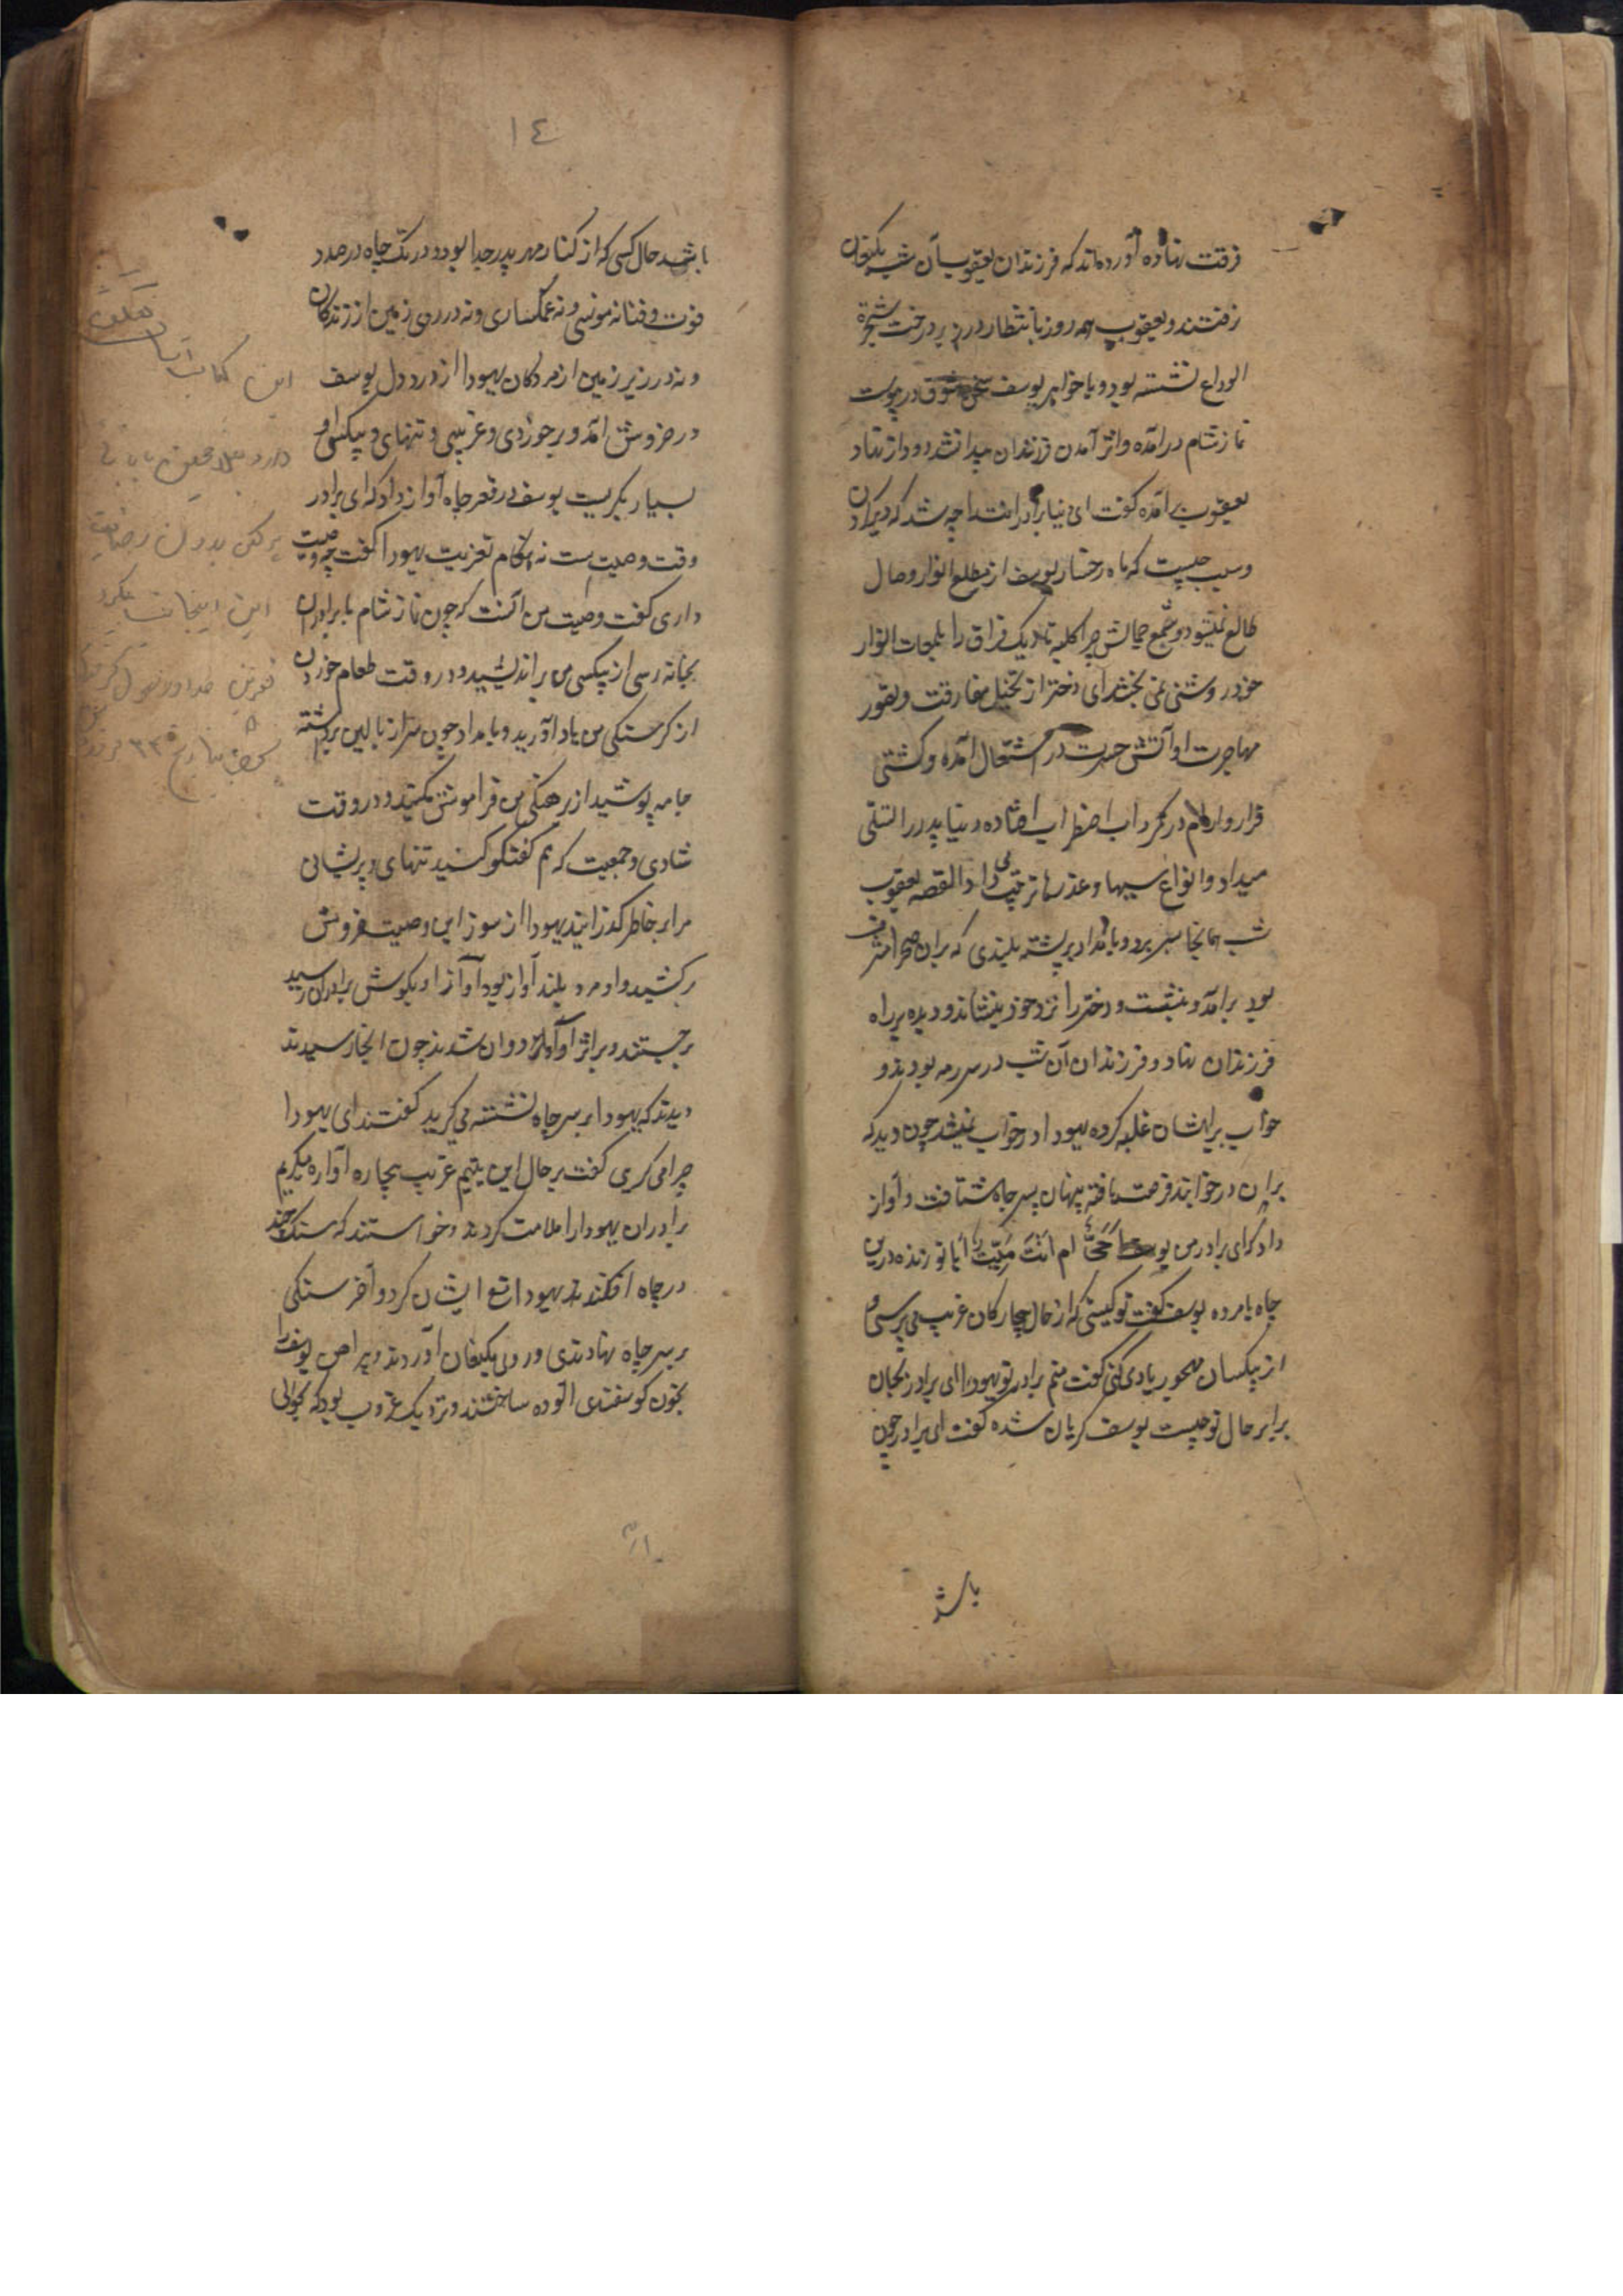 فرقت نهاده آورده‌اند که فرزندان یعقوب آن شب بکنعان
نرفتند و یعقوب همه روز بانتظار در زیر درخت شجرة
الوداع نشسته بود و با خواهر یوسف سخن شوق در پیوست
نماز شام درآمده و اثر آمدن فرزندان پیدا نشد دود از نهاد
یعقوب برآمده گفت ای دنیا برادرانت را چه شد که دیر کردن
و سبب چیست که ماه رخسار یوسف از مطلع انوار وصال
طالع نمیشود و شمع جمالش چرا کلبه تاریک فراق را بلمعات انوار
خود روشنی نمی بخشد ای دختر از تخیل مفارقت و تصور
مهاجرت او آتش حسرت در اشتعال آمده و کشتی
قرار و آرام در گرداب اضطراب افتاده دنیا پدر را تسلی
میداد و انواع سببها و عذرها ترتیب می داد القصه یعقوب
شب همانجا بسر برد و بامداد بر پشته بلندی که بران صحرا مشرف
بود برآمد و بنشست و دختر را نزد خود بنشاند و دیده بر راه
فرزندان نهاد و فرزندان آن شب در سر رمه بودند و
خواب بر ایشان غلبه کرده یهودا در خواب نمیشد چون دید که
برادران در خوابند فرصت یافته پنهان بسر چاه شتافت و آواز
داد که ای برادر من یوسف أحیٌّ ام انتَ میّت آیا تو زنده درین
چاه یا مرده یوسف گفت تو کیستی که از حال بیچارگان غریب می پرسی و
از بیکسان مهجور یاد می کنی گفت منم برادر تو یهودا ای برادر بجان
برابر حال تو چیست یوسف گریان شده گفت ای برادر چون
باشد
١٤
باشد حال کسی که از کنار مهر پدر جدا بود و در تک چاه در صدد
فوت و فنا نه مونسی و نه غمگساری و نه در روی زمین از زندگان
و نه در زیر زمین از مردگان یهودا از درد دل یوسف
در خروش آمد و بر خوردی و غریبی و تنهای و بیکسی او
بسیار بگریست یوسف در قعر چاه آواز داد که ای برادر
وقت وصیت است نه هنگام تعزیت یهودا گفت چه وصیت
داری گفت وصیت من آنست که چون نماز شام با برادران
بخانه رسی از بیکسی من براندیشید و در وقت طعام خوردن
از گرسنگی من یاد آورید و بامداد چون سر از بالین برداشته
جامه پوشید از برهنگی من فراموش مکنید و در وقت
شادی و جمعیت که هم گفتگو کنید تنهای و پریشانی
مرا بر خاطر گذرانید یهودا از سوز این وصیت خروش
برکشید و او مرد بلند آواز بود آواز او بگوش برادران رسید
برجستند و بر اثر آواز دوان شدند چون آنجا رسیدند
دیدند که یهودا بر سر چاه نشسته می گرید گفتند ای یهودا
چرا می گریی گفت بر حال این یتیم غریب بیچاره آواره میگریم
برادران یهودا را ملامت کردند و خواستند که سنگ چند
در چاه افکندند یهودا منع ایشان کرد و آخر سنگی
بر سر چاه نهادندی و روی بکنعان آوردند و پیراهن یوسف را
بخون گوسفندی آلوده ساختند و نزدیک غروب بود که بحوالی
این کتاب
هرکس بدون رضایت
نفرین خدا و رسول گرفتار